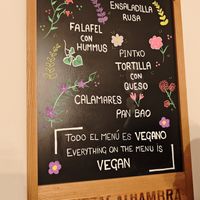 ENSALADILLA
RUSA
FALAFEL
CON
HUMMUS
PINTXO
TORTILLA
CON
QUESO
CALAMARES
PAN BAO
TODO EL MENÚ ES VEGANO
EVERYTHING ON THE MENU IS
VEGAN
ALHAMBRA